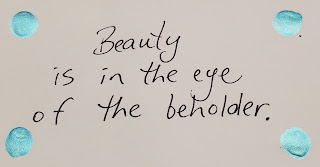 Beauty
is in the eye
of the beholder.